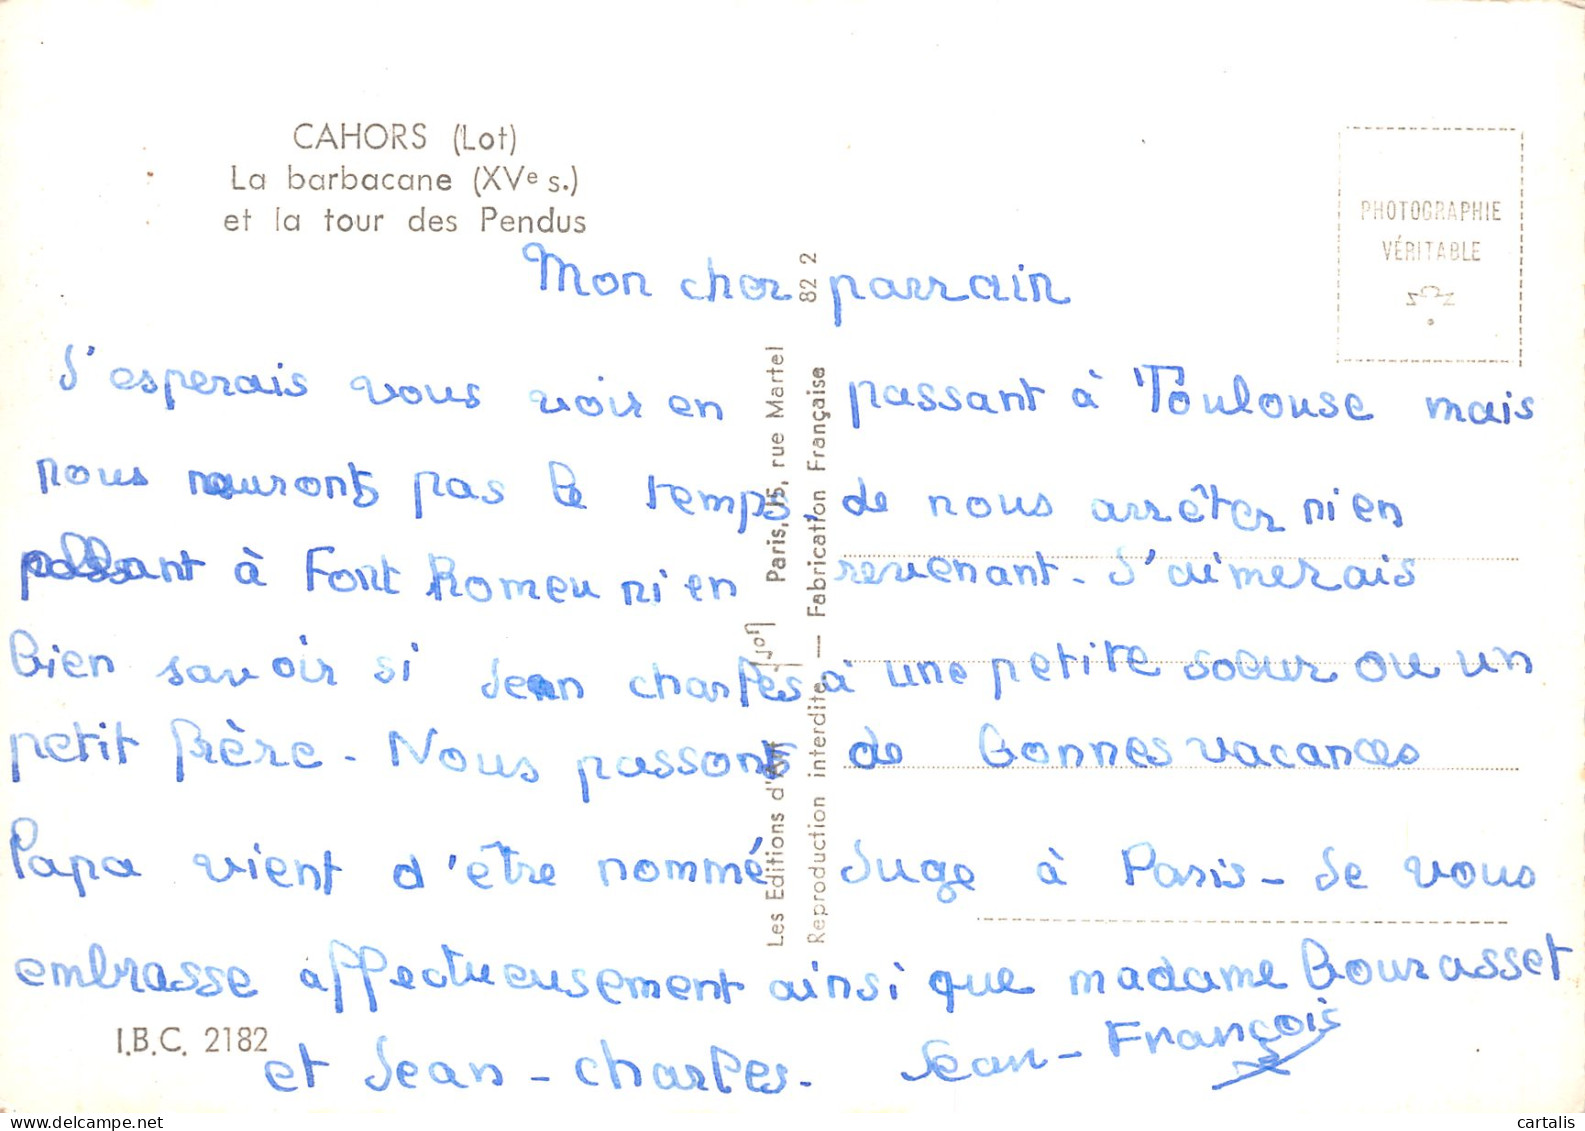 CAHORS (Lot)
La barbacane (XVe s.)
et la tour des Pendus
PHOTOGRAPHIE
VÉRITABLE
Mon cher parrain
J'esperais vous voir en passant à Toulouse mais
nous nauronts pas le temps de nous arrêter ni en
passant à Font Romeu ni en revenant - J'aimerais
bien savoir si Jean charles à une petite soeur ou un
petit frère - Nous passons de bonnes vacances
Papa vient d'être nommé Juge à Paris - Je vous
embrasse affectueusement ainsi que madame Bourasset
et Jean - charles - Jean - François
I.B.C. 2182
Les Editions d'Art Yvon Paris, 15, rue Martel
Reproduction interdite — Fabrication Française
82 2
cartalis